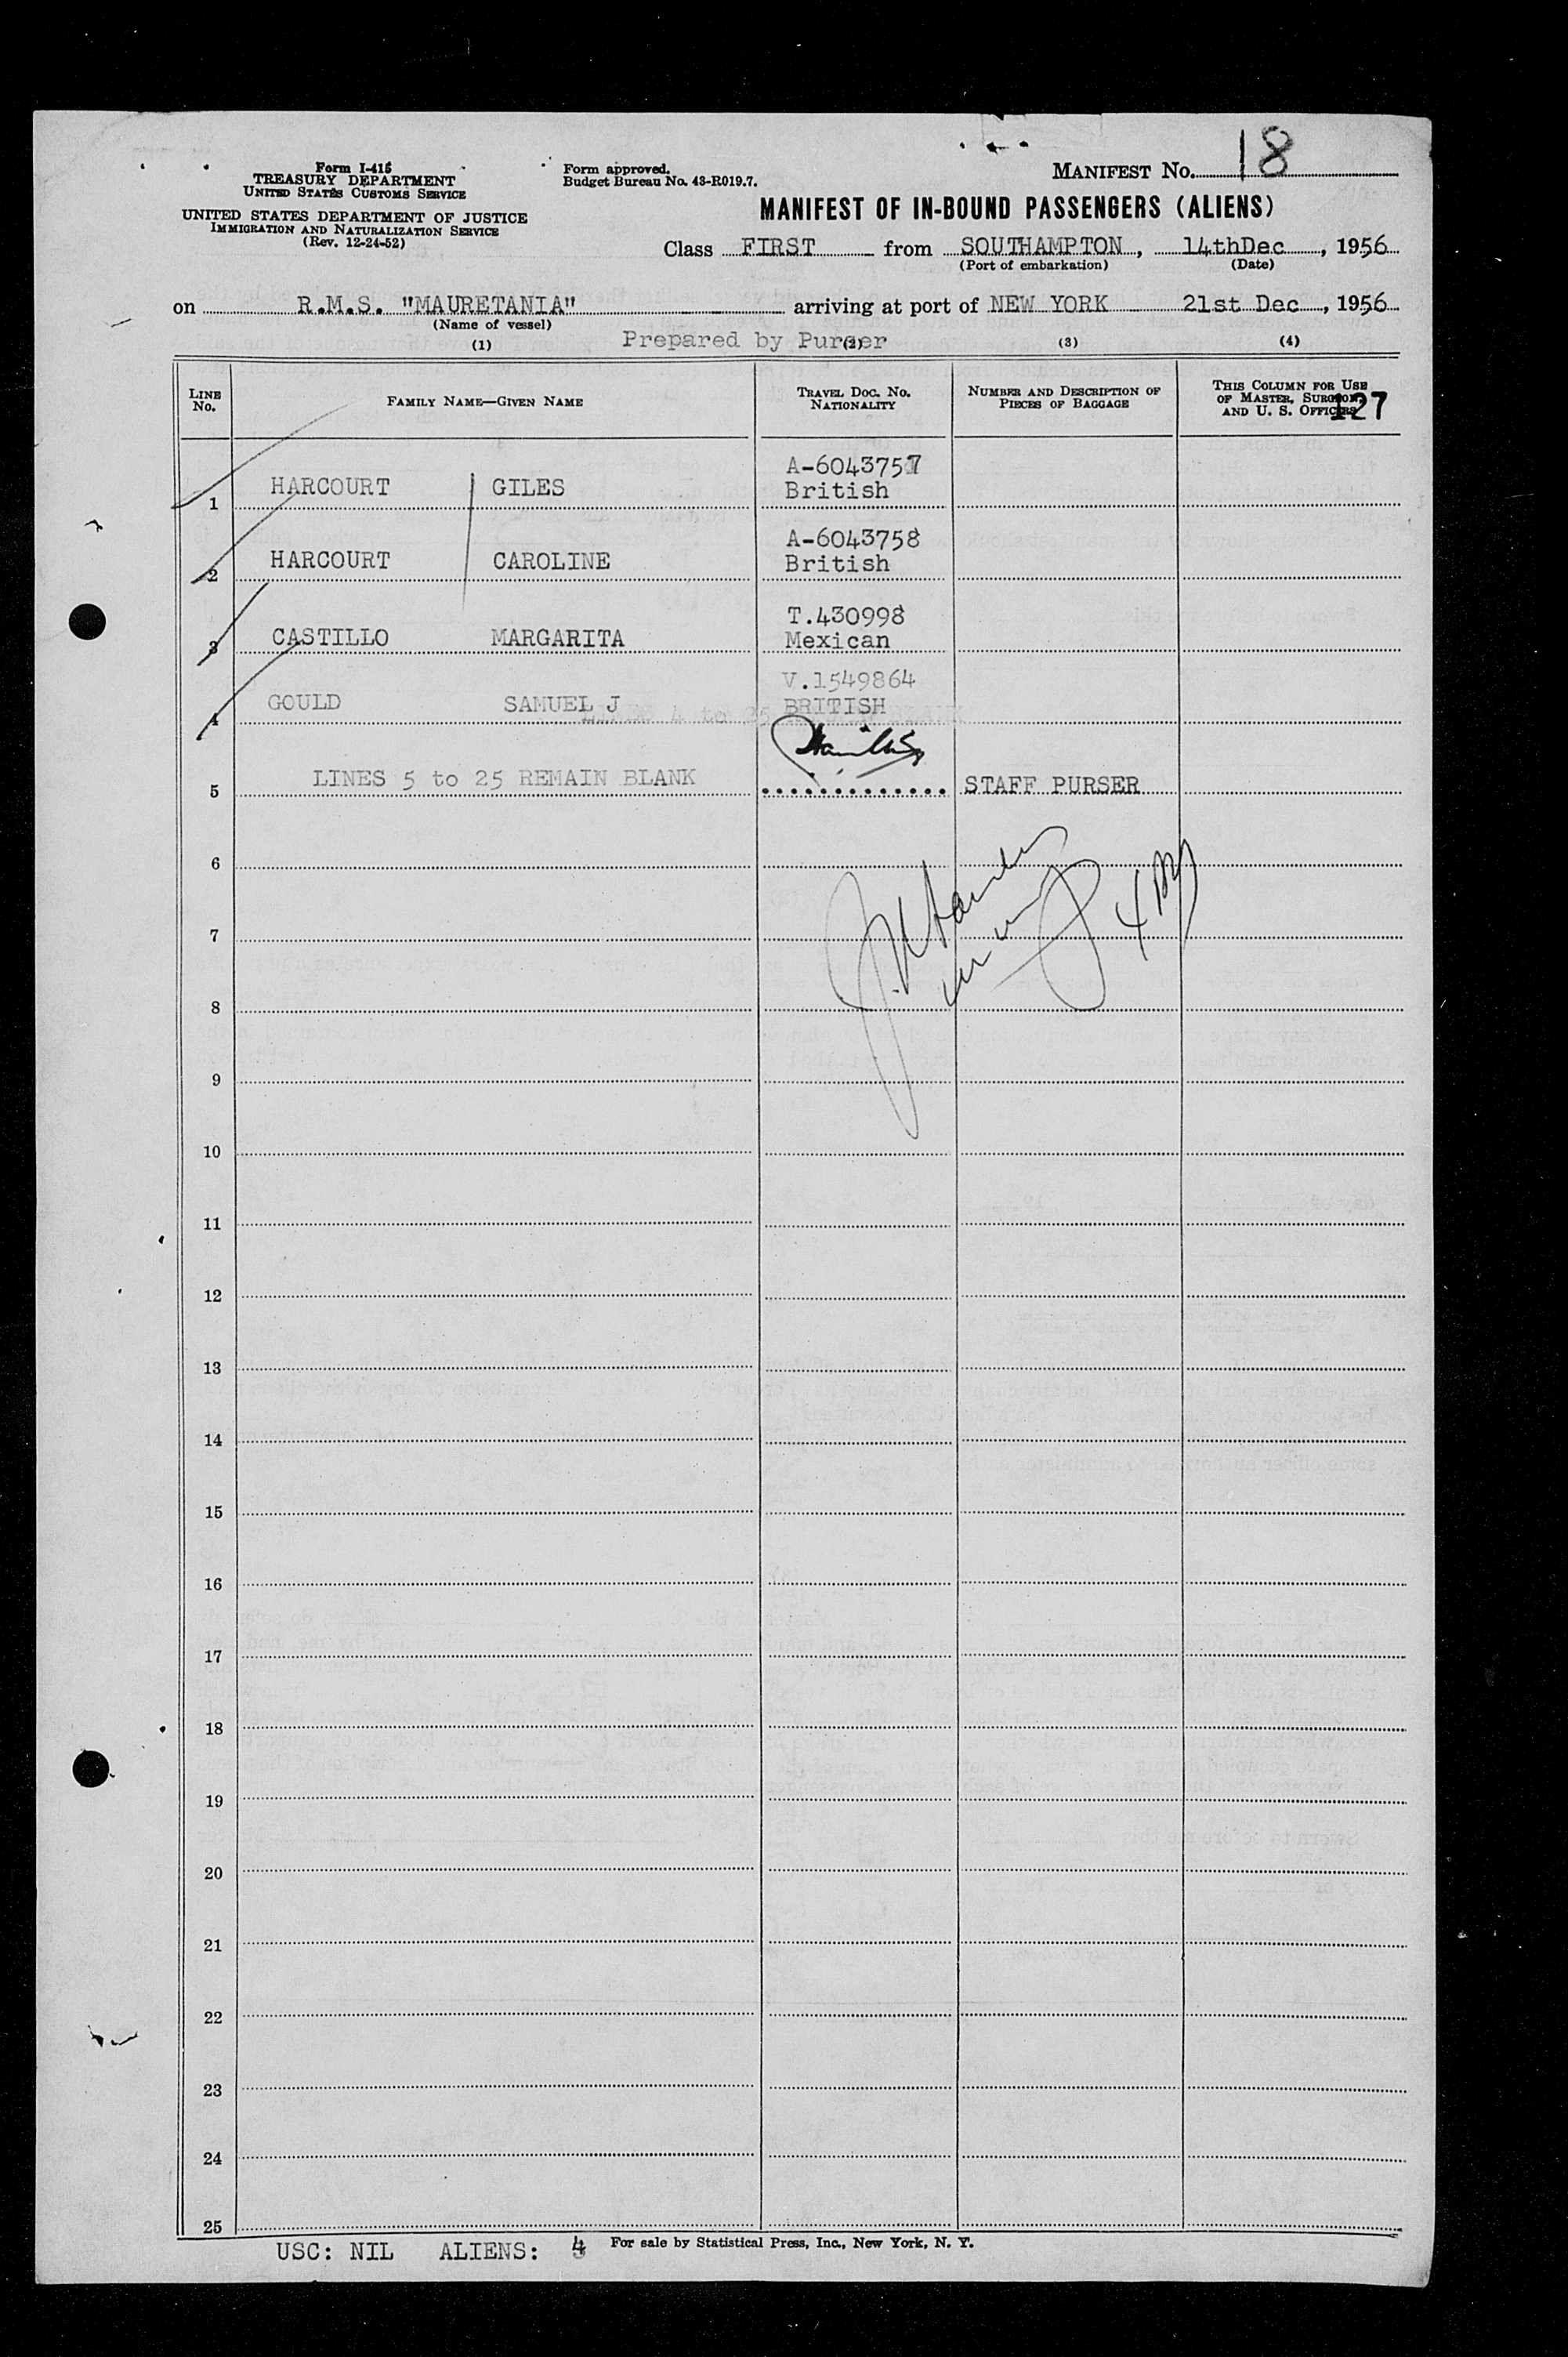 Form I-415
TREASURY DEPARTMENT
UNITED STATES CUSTOMS SERVICE
UNITED STATES DEPARTMENT OF JUSTICE
IMMIGRATION AND NATURALIZATION SERVICE
(Rev. 12-24-52)
Form approved.
Budget Bureau No. 43-R019.7.
MANIFEST No. 18
MANIFEST OF IN-BOUND PASSENGERS (ALIENS)
Class FIRST from SOUTHAMPTON, 14thDec, 1956
(Port of embarkation) (Date)
on R.M.S. "MAURETANIA" arriving at port of NEW YORK 21st Dec, 1956
(Name of vessel)
(1) Prepared by Purser (2) (3) (4)
LINE No. FAMILY NAME—GIVEN NAME TRAVEL DOC. NO. NATIONALITY NUMBER AND DESCRIPTION OF PIECES OF BAGGAGE THIS COLUMN FOR USE OF MASTER, SURGEON, AND U. S. OFFICERS
127
A-6043757
1 HARCOURT GILES British
A-6043758
2 HARCOURT CAROLINE British
T.430998
3 CASTILLO MARGARITA Mexican
V.1549864
4 GOULD SAMUEL J BRITISH
5 LINES 5 to 25 REMAIN BLANK STAFF PURSER
6
7
8
9
10
11
12
13
14
15
16
17
18
19
20
21
22
23
24
25
USC: NIL ALIENS: 4 For sale by Statistical Press, Inc., New York, N. Y.